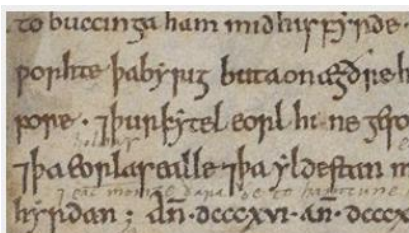 to buccinga ham mid his fyrde ·
ƿorhte þa byrig buta on ægðre h
fore · ⁊ þurkytel eorl hi ne geso
holdas
⁊ þa eorlas ealle ⁊ þa yldestan m
⁊ eac monige þara þe to hamtune
hyrdan ; añ · dcccxvi · añ · dcccx